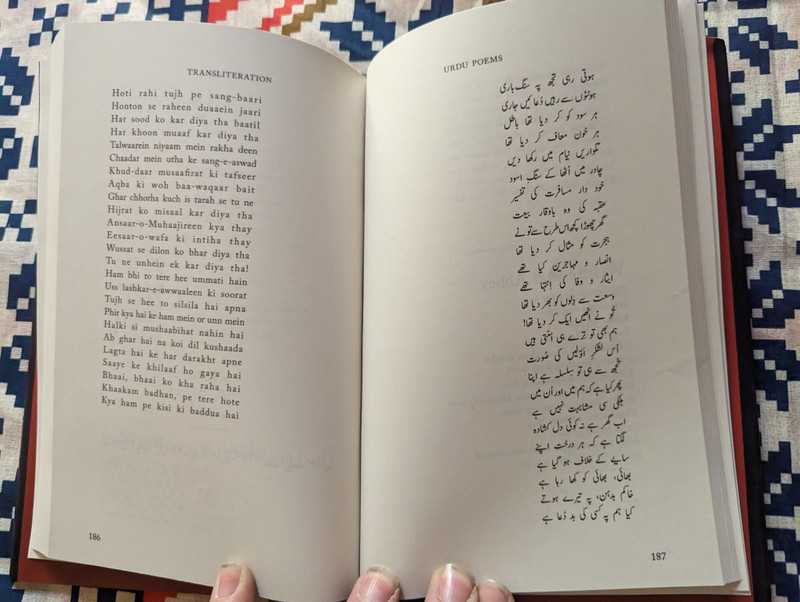 TRANSLITERATION
Hoti rahi tujh pe sang-baari
Honton se raheen duaaein jaari
Har sood ko kar diya tha baatil
Har khoon muaaf kar diya tha
Talwaarein niyaam mein rakha deen
Chaadar mein utha ke sang-e-aswad
Khud-daar musaafirat ki tafseer
Aqba ki woh baa-waqaar bait
Ghar chhorha kuch is tarah se tu ne
Hijrat ko misaal kar diya tha
Ansaar-o-Muhaajireen kya thay
Eesaar-o-wafa ki intiha thay
Wussat se dilon ko bhar diya tha
Tu ne unhein ek kar diya tha!
Ham bhi to tere hee ummati hain
Uss lashkar-e-awwaaleen ki soorat
Tujh se hee to silsila hai apna
Phir kya hai ke ham mein or unn mein
Halki si mushaabihat nahin hai
Ab ghar hai na koi dil kushaada
Lagta hai ke har darakht apne
Saaye ke khilaaf ho gaya hai
Bhaai, bhaai ko kha raha hai
Khaakam badhan, pe tere hote
Kya ham pe kisi ki baddua hai
186
URDU POEMS
ہوتی رہی تجھ پہ سنگ باری
ہونٹوں سے رہیں دُعائیں جاری
ہر سود کو کر دیا تھا باطل
ہر خون معاف کر دیا تھا
تلواریں نیام میں رکھا دیں
چادر میں اُٹھا کے سنگِ اسود
خود دار مسافرت کی تفسیر
عقبہ کی وہ باوقار بیعت
گھر چھوڑا کچھ اس طرح سے تو نے
ہجرت کو مثال کر دیا تھا
انصار و مہاجرین کیا تھے
ایثار و وفا کی انتہا تھے
وسعت سے دلوں کو بھر دیا تھا
تُو نے انھیں ایک کر دیا تھا!
ہم بھی تو ترے ہی اُمتی ہیں
اُس لشکرِ اوّلیں کی صورت
تجھ سے ہی تو سلسلہ ہے اپنا
پھر کیا ہے کہ ہم میں اور اُن میں
ہلکی سی مشابہت نہیں ہے
اب گھر ہے نہ کوئی دل کشادہ
لگتا ہے کہ ہر درخت اپنے
سایے کے خلاف ہو گیا ہے
بھائی، بھائی کو کھا رہا ہے
خاکم بدہن، پہ تیرے ہوتے
کیا ہم پہ کسی کی بد دُعا ہے
187